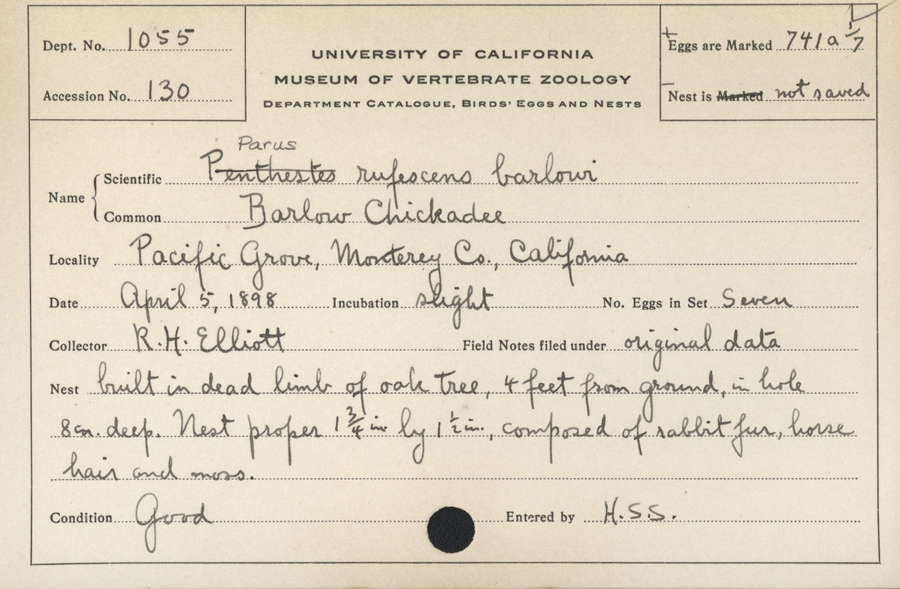 Dept. No. 1055
Accession No. 130
UNIVERSITY OF CALIFORNIA
MUSEUM OF VERTEBRATE ZOOLOGY
DEPARTMENT CATALOGUE, BIRDS' EGGS AND NESTS
Eggs are Marked 741a 5/7
Nest is Marked not saved
Parus
Name { Scientific Penthestes rufescens barlowi
Common Barlow Chickadee
Locality Pacific Grove, Monterey Co., California
Date April 5, 1898 Incubation slight No. Eggs in Set Seven
Collector R.H. Elliott Field Notes filed under original data
Nest built in dead limb of oak tree, 4 feet from ground, in hole
8 in. deep. Nest proper 1 3/4 in. by 1 1/2 in., composed of rabbit fur, horse
hair and moss.
Condition Good Entered by H.S.S.